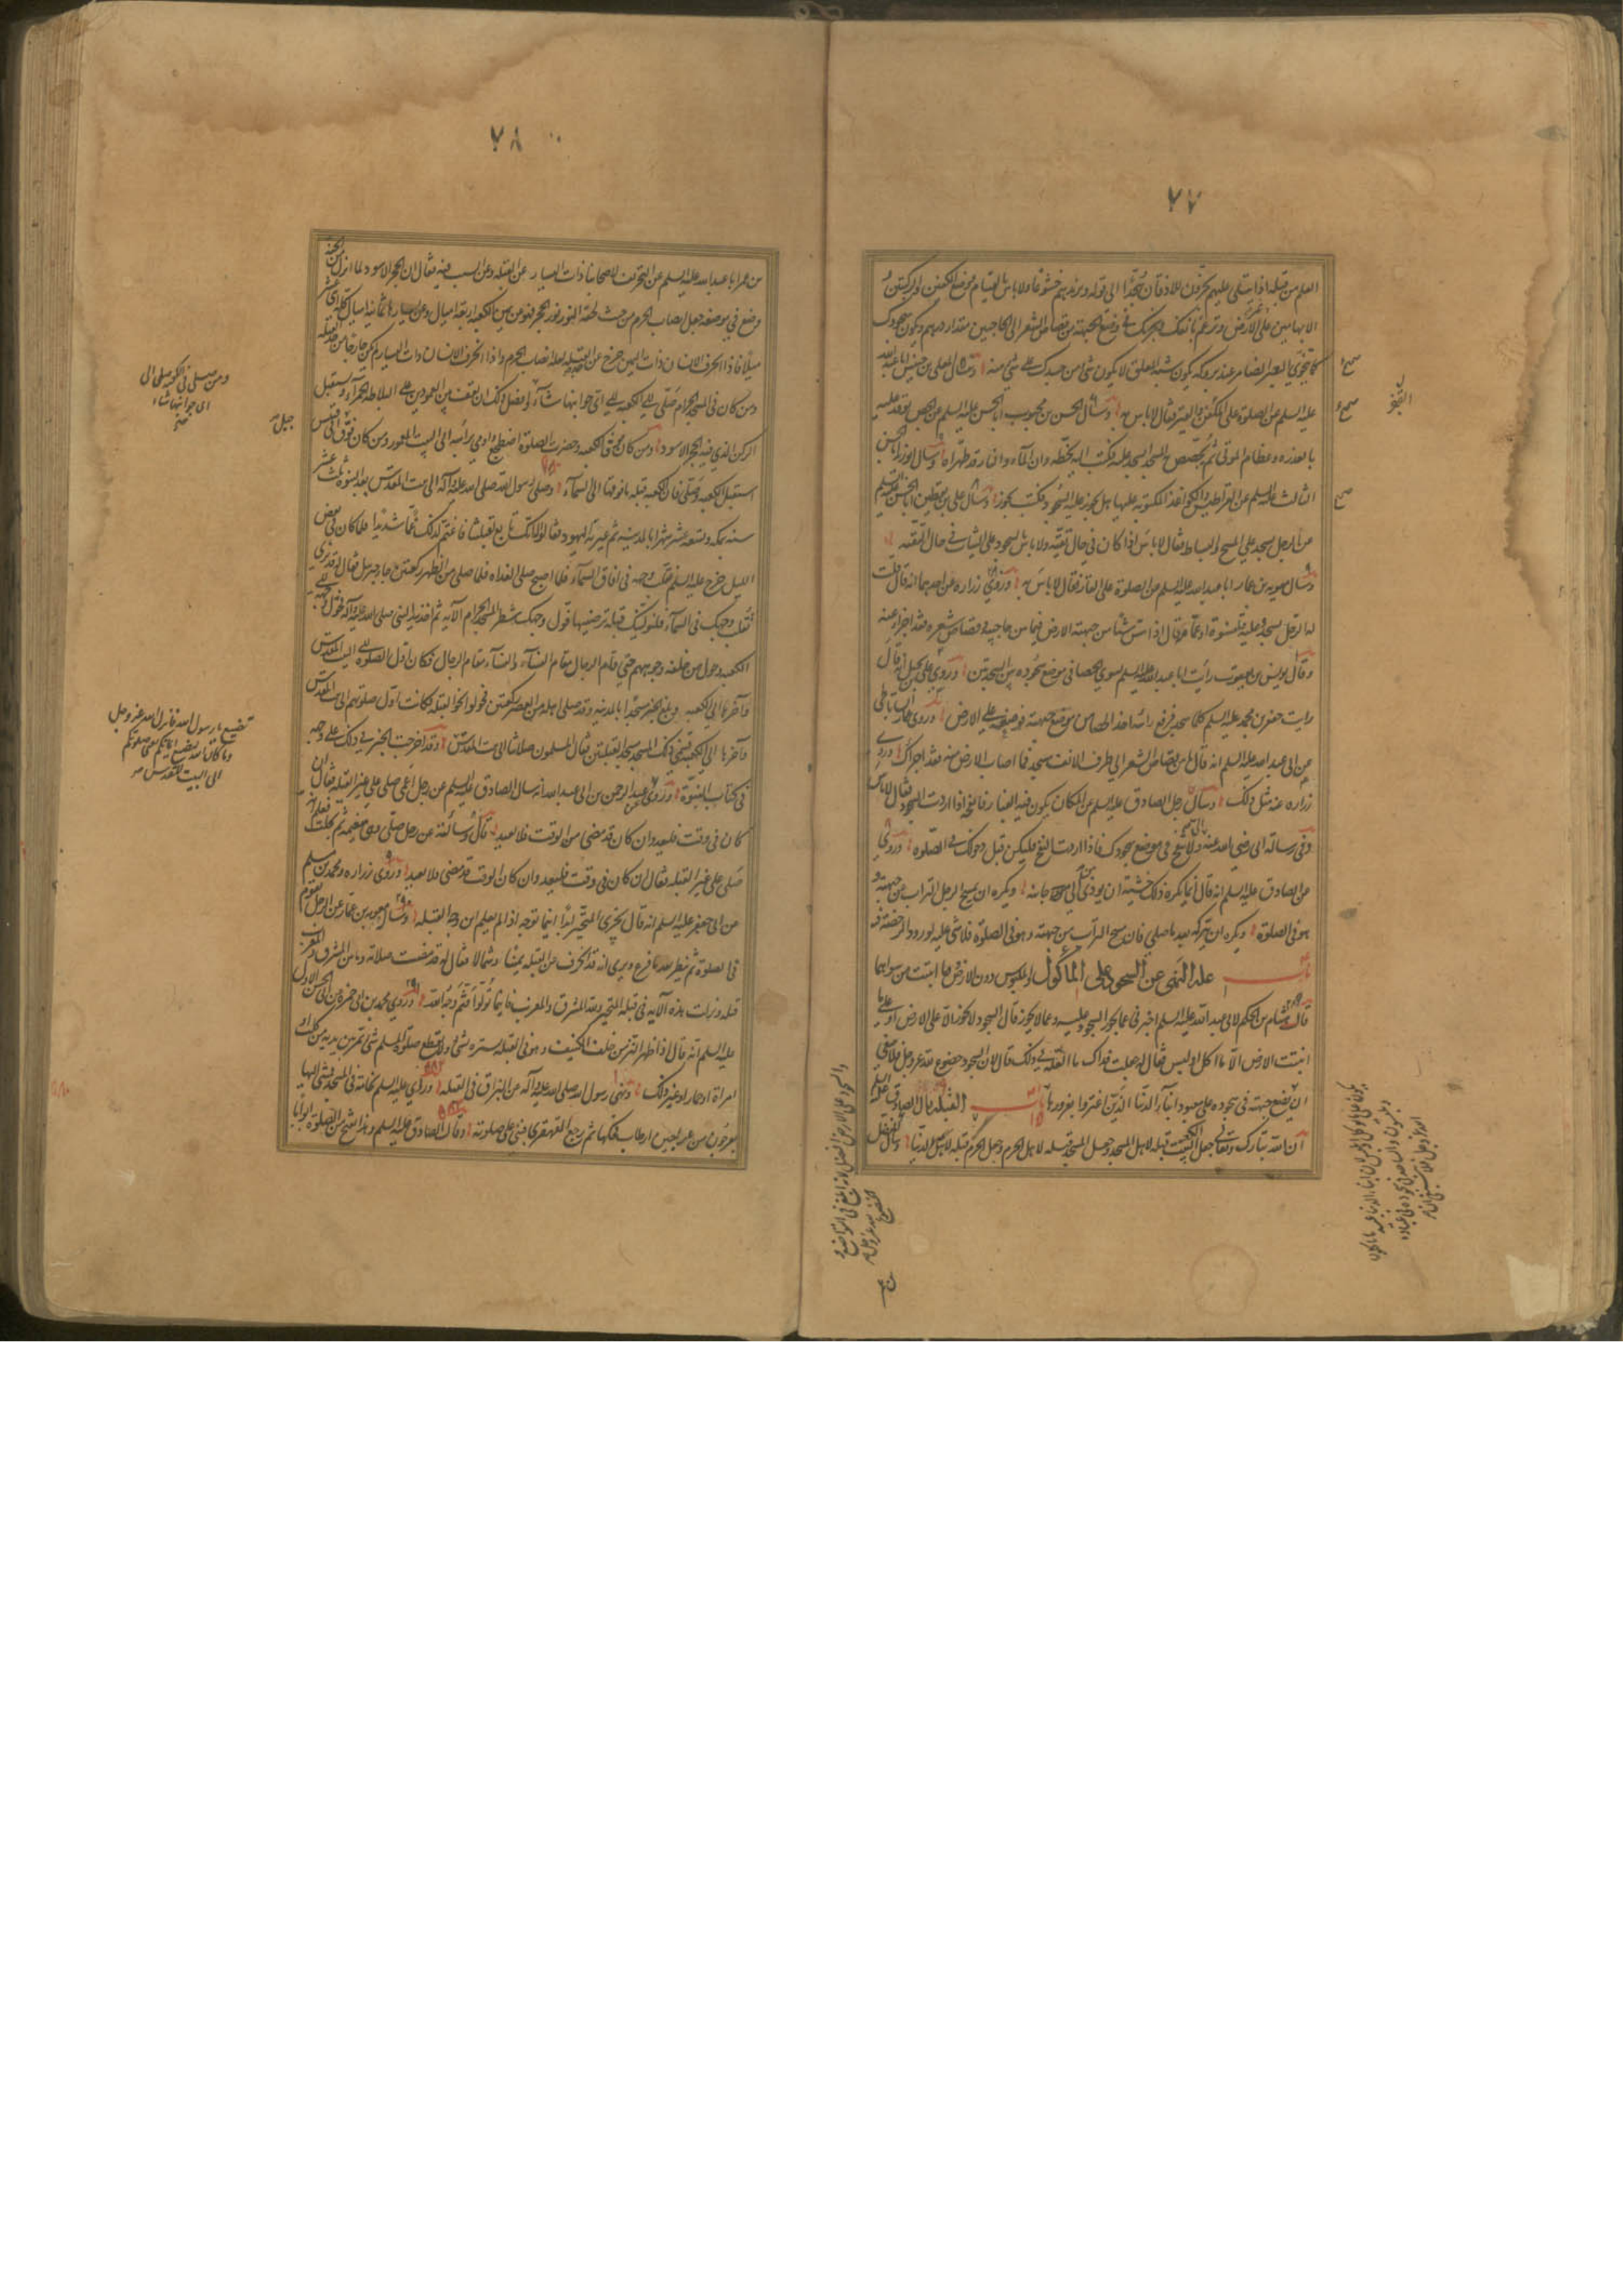 ٧٧
العلم من قبله اذا يتلى عليهم يخرون للاذقان سجدا الى قوله ويزيدهم خشوعا ولا باس بالقيام ووضع الكفين والركبتين و
الابهامين على الارض وترغم بانفك ويجزيك في وضع الجبهة من قصاص الشعر الى الحاجبين مقدار درهم ويكون سجودك
كما يتخوى البعير الضامر عند بروكه يكون شبه المعلق لا يكون شئ من جسدك على شئ منه وسال المعلى بن خنيس ابا عبد الله
عليه السلم عن الصلوة على القفر والقير فقال لا باس به وسال الحسن بن محبوب ابا الحسن عليه السلم عن الجص يوقد عليه
بالعذره وعظام الموتى ثم يجصص به المسجد ايسجد عليه فكتب اليه بخطه ان المآء والنار قد طهراه وسال داود بن ابى يزيد ابا الحسن
الثالث عليه السلم عن القراطيس والكواغذ المكتوبه عليها هل يجوز عليها السجود فكتب يجوز وسال على بن يقطين ابا الحسن عليه السلم
عن الرجل يسجد على المسح والبساط فقال لا باس اذا كان في حال تقيه ولا باس بالسجود على الثياب في حال التقيه
وسال معويه بن عمار ابا عبد الله عليه السلم عن الصلوة على القار فقال لا باس به وروى زراره عن احدهما انه قال قلت
له الرجل يسجد وعليه قلنسوة او عمامة فقال اذا مس شئ من جبهته الارض فيما بين حاجبيه وقصاص شعره فقد اجزا عنه
وقال يونس بن يعقوب رايت ابا عبد الله عليه السلم يسوي الحصا في موضع سجوده بين السجدتين وروى على بن بجيل انه قال
رايت جعفر بن محمد عليه السلم كلما سجد فرفع راسه اخذ الحصا من موضع جبهته فوضعه على الارض وروى عمار الساباطي
عن ابى عبد الله عليه السلم انه قال ما بين قصاص الشعر الى طرف الانف مسجد فما اصاب الارض منه فقد اجزاك وروى
زراره عنه مثل ذلك وسال رجل الصادق عليه السلم عن المكان يكون فيه الغبار فانفخه اذا اردت السجود فقال لا باس
وفي رسالة ابى رضى الله عنه الى ولا تنفخ في موضع سجودك فاذا اردت النفخ فليكن قبل دخولك في الصلوه وروى
عن الصادق عليه السلم انه قال انما يكره ذلك خشية ان يوذى من الى جانبه ويكره ان يمسح الرجل التراب عن جبهته و
هو في الصلوة ويكره ان يتركه بعد ما صلى فان مسح التراب من جبهته وهو في الصلوة فلا شئ عليه لورود الرخصة فيه
باب علة النهى عن السجود على الماكول والملبوس دون الارض وما انبتت من سواهما
قال هشام بن الحكم لابى عبد الله عليه السلم اخبرني عما يجوز السجود عليه وعما لا يجوز قال السجود لا يجوز الا على الارض او على ما
انبتت الارض الا ما اكل او لبس فقال له جعلت فداك ما العلة في ذلك قال لان السجود خضوع لله عز وجل فلا ينبغى
ان يضع جبهته في سجوده على معبود ابنآء الدنيا الذين اغتروا بغرورها باب القبله قال الصادق عليه السلم
ان الله تبارك وتعالى جعل الكعبة قبله لاهل المسجد وجعل المسجد قبله لاهل الحرم وجعل الحرم قبله لاهل الدنيا وسال المفضل
صح
صح
صح
القفر
٧٨
بن عمر ابا عبد الله عليه السلم عن التحريف لاصحابنا ذات اليسار عن القبله وعن السبب فيه فقال ان الحجر الاسود لما انزل من الجنه
ووضع في موضعه جعل انصاب الحرم من حيث لحقه النور نور الحجر فهو عن يمين الكعبه اربعة اميال وعن يسارها ثمانيه اميال كله اثنى عشر
ميلا فاذا انحرف الانسان ذات اليمين خرج عن حد القبله لعله انصاب الحرم واذا انحرف الانسان ذات اليسار لم يكن خارجا من حد القبله
ومن كان في المسجد الحرام صلى الى الكعبه الى اى جوانبها شآء وافضل ذلك ان تقف بين العمودين على البلاطة الحمرآء وتستقبل
الركن الذي فيه الحجر الاسود ومن كان فوق الكعبه وحضرت الصلوة اضطجع واومى براسه الى البيت المعمور ومن كان فوق ابى قبيس
استقبل الكعبه وصلى فان الكعبه قبله ما فوقها الى السمآء وصلى رسول الله صلى الله عليه وآله الى بيت المقدس بعد النبوه ثلث عشر
سنه بمكه وتسعه عشر شهرا بالمدينه ثم عيرته اليهود فقالوا له انك تابع لقبلتنا فاغتم لذلك غما شديدا فلما كان في بعض
الليل خرج عليه السلم يقلب وجهه في افاق السمآء فلما اصبح صلى الغداه فلما صلى من الظهر ركعتين جاء جبريل فقال له قد نرى
تقلب وجهك في السمآء فلنولينك قبلة ترضيها فول وجهك شطر المسجد الحرام الآيه ثم اخذ بيد النبى صلى الله عليه وآله فحول وجهه الى
الكعبه وحول من خلفه وجوههم حتى قام الرجال مقام النسآء والنسآء مقام الرجال فكان اول الصلوه الى البيت المقدس
وآخرها الى الكعبه وبلغ الخبر مسجدا بالمدينه وقد صلى اهله من العصر ركعتين فحولوا نحو القبله فكانت اول صلوتهم الى بيت المقدس
وآخرها الى الكعبه فسمى ذلك المسجد مسجد القبلتين فقال المسلمون صلاتنا الى بيت المقدس وقد اخرجت الخبر في ذلك على وجهه
في كتاب النبوة وروى عبد الرحمن بن ابى عبد الله انه سال الصادق عليه السلم عن رجل اعمى صلى على غير القبله فقال ان
كان في وقت فليعد وان كان قد مضى من الوقت فلا يعيد قال وسالته عن رجل صلى وهى مغيمه ثم تجلت فعلم انه
صلى على غير القبله فقال ان كان في وقت فليعد وان كان الوقت قد مضى فلا يعيد وروى زراره ومحمد بن مسلم
عن ابى جعفر عليه السلم انه قال يجزى المتحير ابدا اينما توجه اذا لم يعلم اين وجه القبله وسال معويه بن عمار عن الرجل يقوم
في الصلوة ثم ينظر بعد ما فرغ ويرى انه قد انحرف عن القبله يمينا وشمالا فقال له قد مضت صلاته وما بين المشرق والمغرب
قبله ونزلت هذه الآيه في قبلة المتحير ولله المشرق والمغرب فاينما تولوا فثم وجه الله وروى محمد بن ابى حمزه عن ابى الحسن الاول
عليه السلم انه قال اذا ظهر النز من خلف الكنيف وهو في القبله يستره بشئ ولا يقطع صلوة المسلم شئ تمر بين يديه من كلب او
امراة او حمار او غير ذلك ونهى رسول الله صلى الله عليه وآله عن البزاق في القبله وراى عليه السلم نخامة في المسجد فمشى اليها
بعرجون من عراجين ارطاب فحكها ثم رجع القهقرى فبنى على صلوته وقال الصادق عليه السلم وهذا يفتح من الصلوة ابوابا
ومن صلى في الكعبه صلى الى
اى جوانبها شاء
جبل
تضيع يا رسول الله فانزل الله عز وجل
وما كان الله ليضيع ايمانكم يعنى صلوتكم
الى البيت المقدس